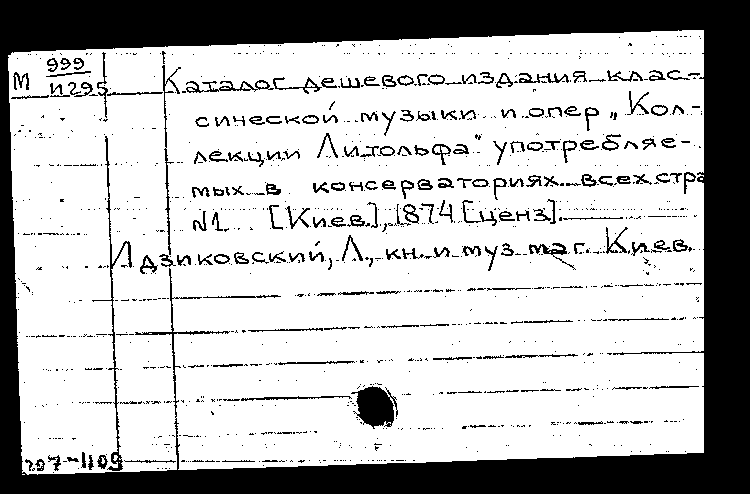 М 999
И295
Каталог дешевого издания клас-
сической музыки и опер „Кол-
лекции Литольфа" употребляе-
мых в консерваториях всех стра
№1 [Киев], 1874 [ценз].
Идзиковский, Л., кн. и муз маг. Киев.
207-1109